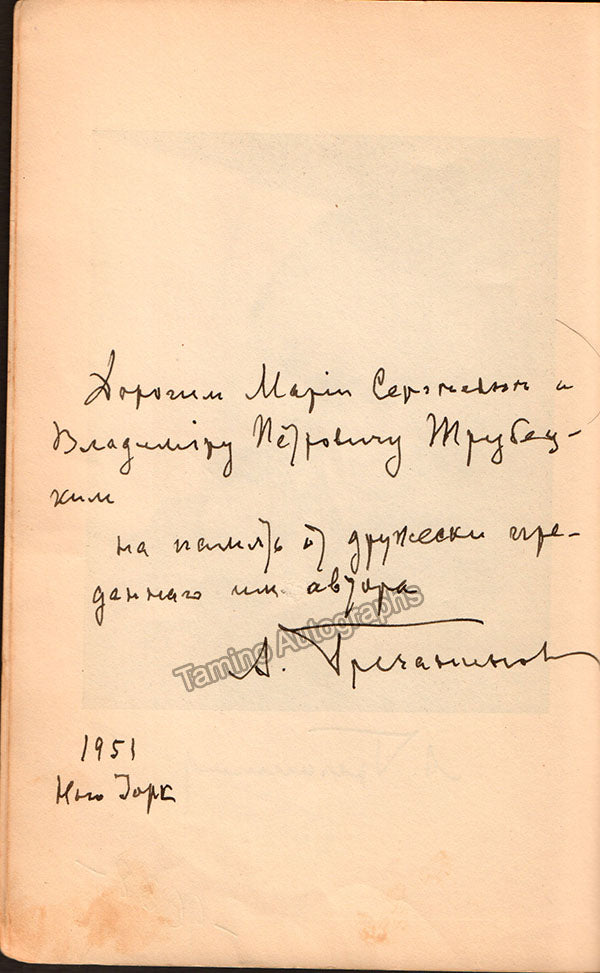 Дорогим Маріи Сергѣевнѣ и
Владиміру Петровичу Трубец-
ким
на память от дружески пре-
даннаго им автора
А. Гречанинов
Tamino Autographs
1951
Нью Іорк